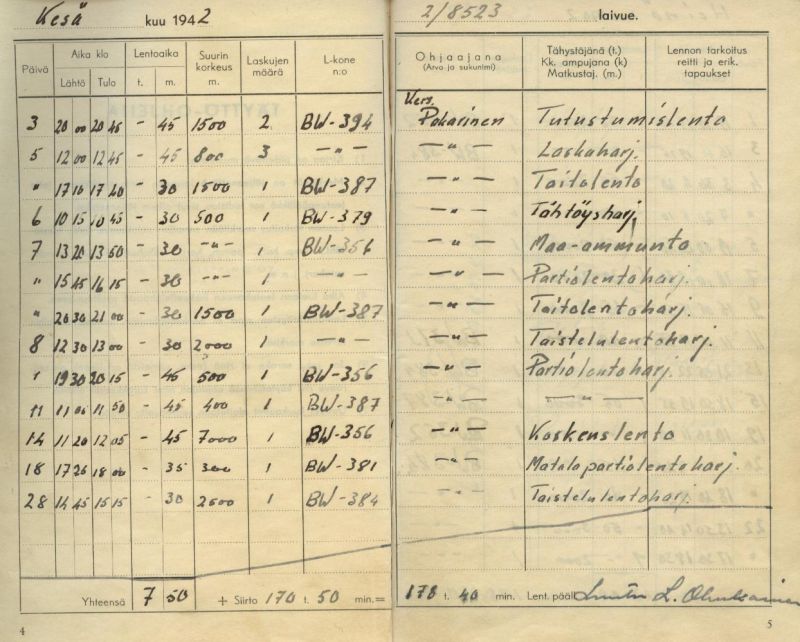 Kesä kuu 1942 2/8523 laivue.
Päivä Aika klo Lentoaika Suurin korkeus m. Laskujen määrä L-kone n:o Ohjaajana (Arvo ja sukunimi) Tähystäjänä (t.) Kk. ampujana (k) Matkustaj. (m.) Lennon tarkoitus reitti ja erik. tapaukset
Lähtö Tulo t. m.
Kers.
3 20 00 20 45 - 45 1500 2 BW-394 Pokarinen Tutustumislento
5 12 00 12 45 - 45 800 3 -"- -"- Laskuharj.
" 17 10 17 20 - 30 1500 1 BW-387 -"- Taitolento
6 10 15 10 45 - 30 500 1 BW-379 -"- Tähtöysharj.
7 13 20 13 50 - 30 -"- 1 BW-356 -"- Maa-ammunta
" 15 45 16 15 - 30 -"- 1 -"- -"- Partiolentoharj.
" 20 30 21 00 - 30 1500 1 BW-387 -"- Taitolentoharj.
8 12 30 13 00 - 30 2000 1 -"- -"- Taistelulentoharj.
" 19 30 20 15 - 45 500 1 BW-356 -"- Partiolentoharj.
11 11 05 11 50 - 45 400 1 BW-387 -"- -"-
14 11 20 12 05 - 45 7000 1 BW-356 -"- Koskenslento
18 17 25 18 00 - 35 300 1 BW-381 -"- Matalapartiolentoharj.
28 14 45 15 15 - 30 2500 1 BW-384 -"- Taistelulentoharj.
Yhteensä 7 50 + Siirto 170 t. 50 min.= 178 t. 40 min. Lent. pääll.
4 5